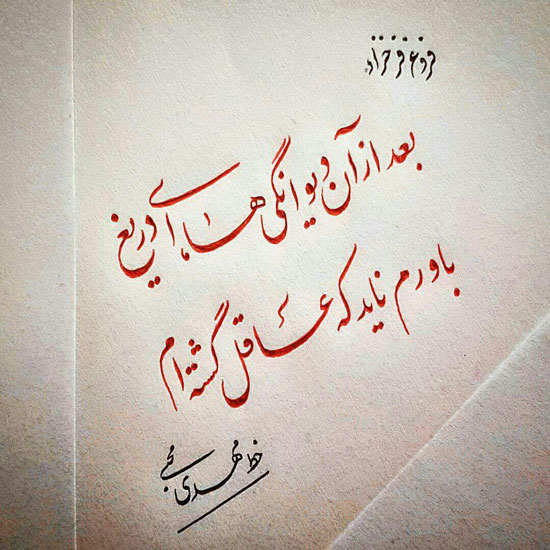 فروغ فرخزاد
بعد از آن دیوانگی ها ای دریغ
باورم ناید که عاقل گشته ام